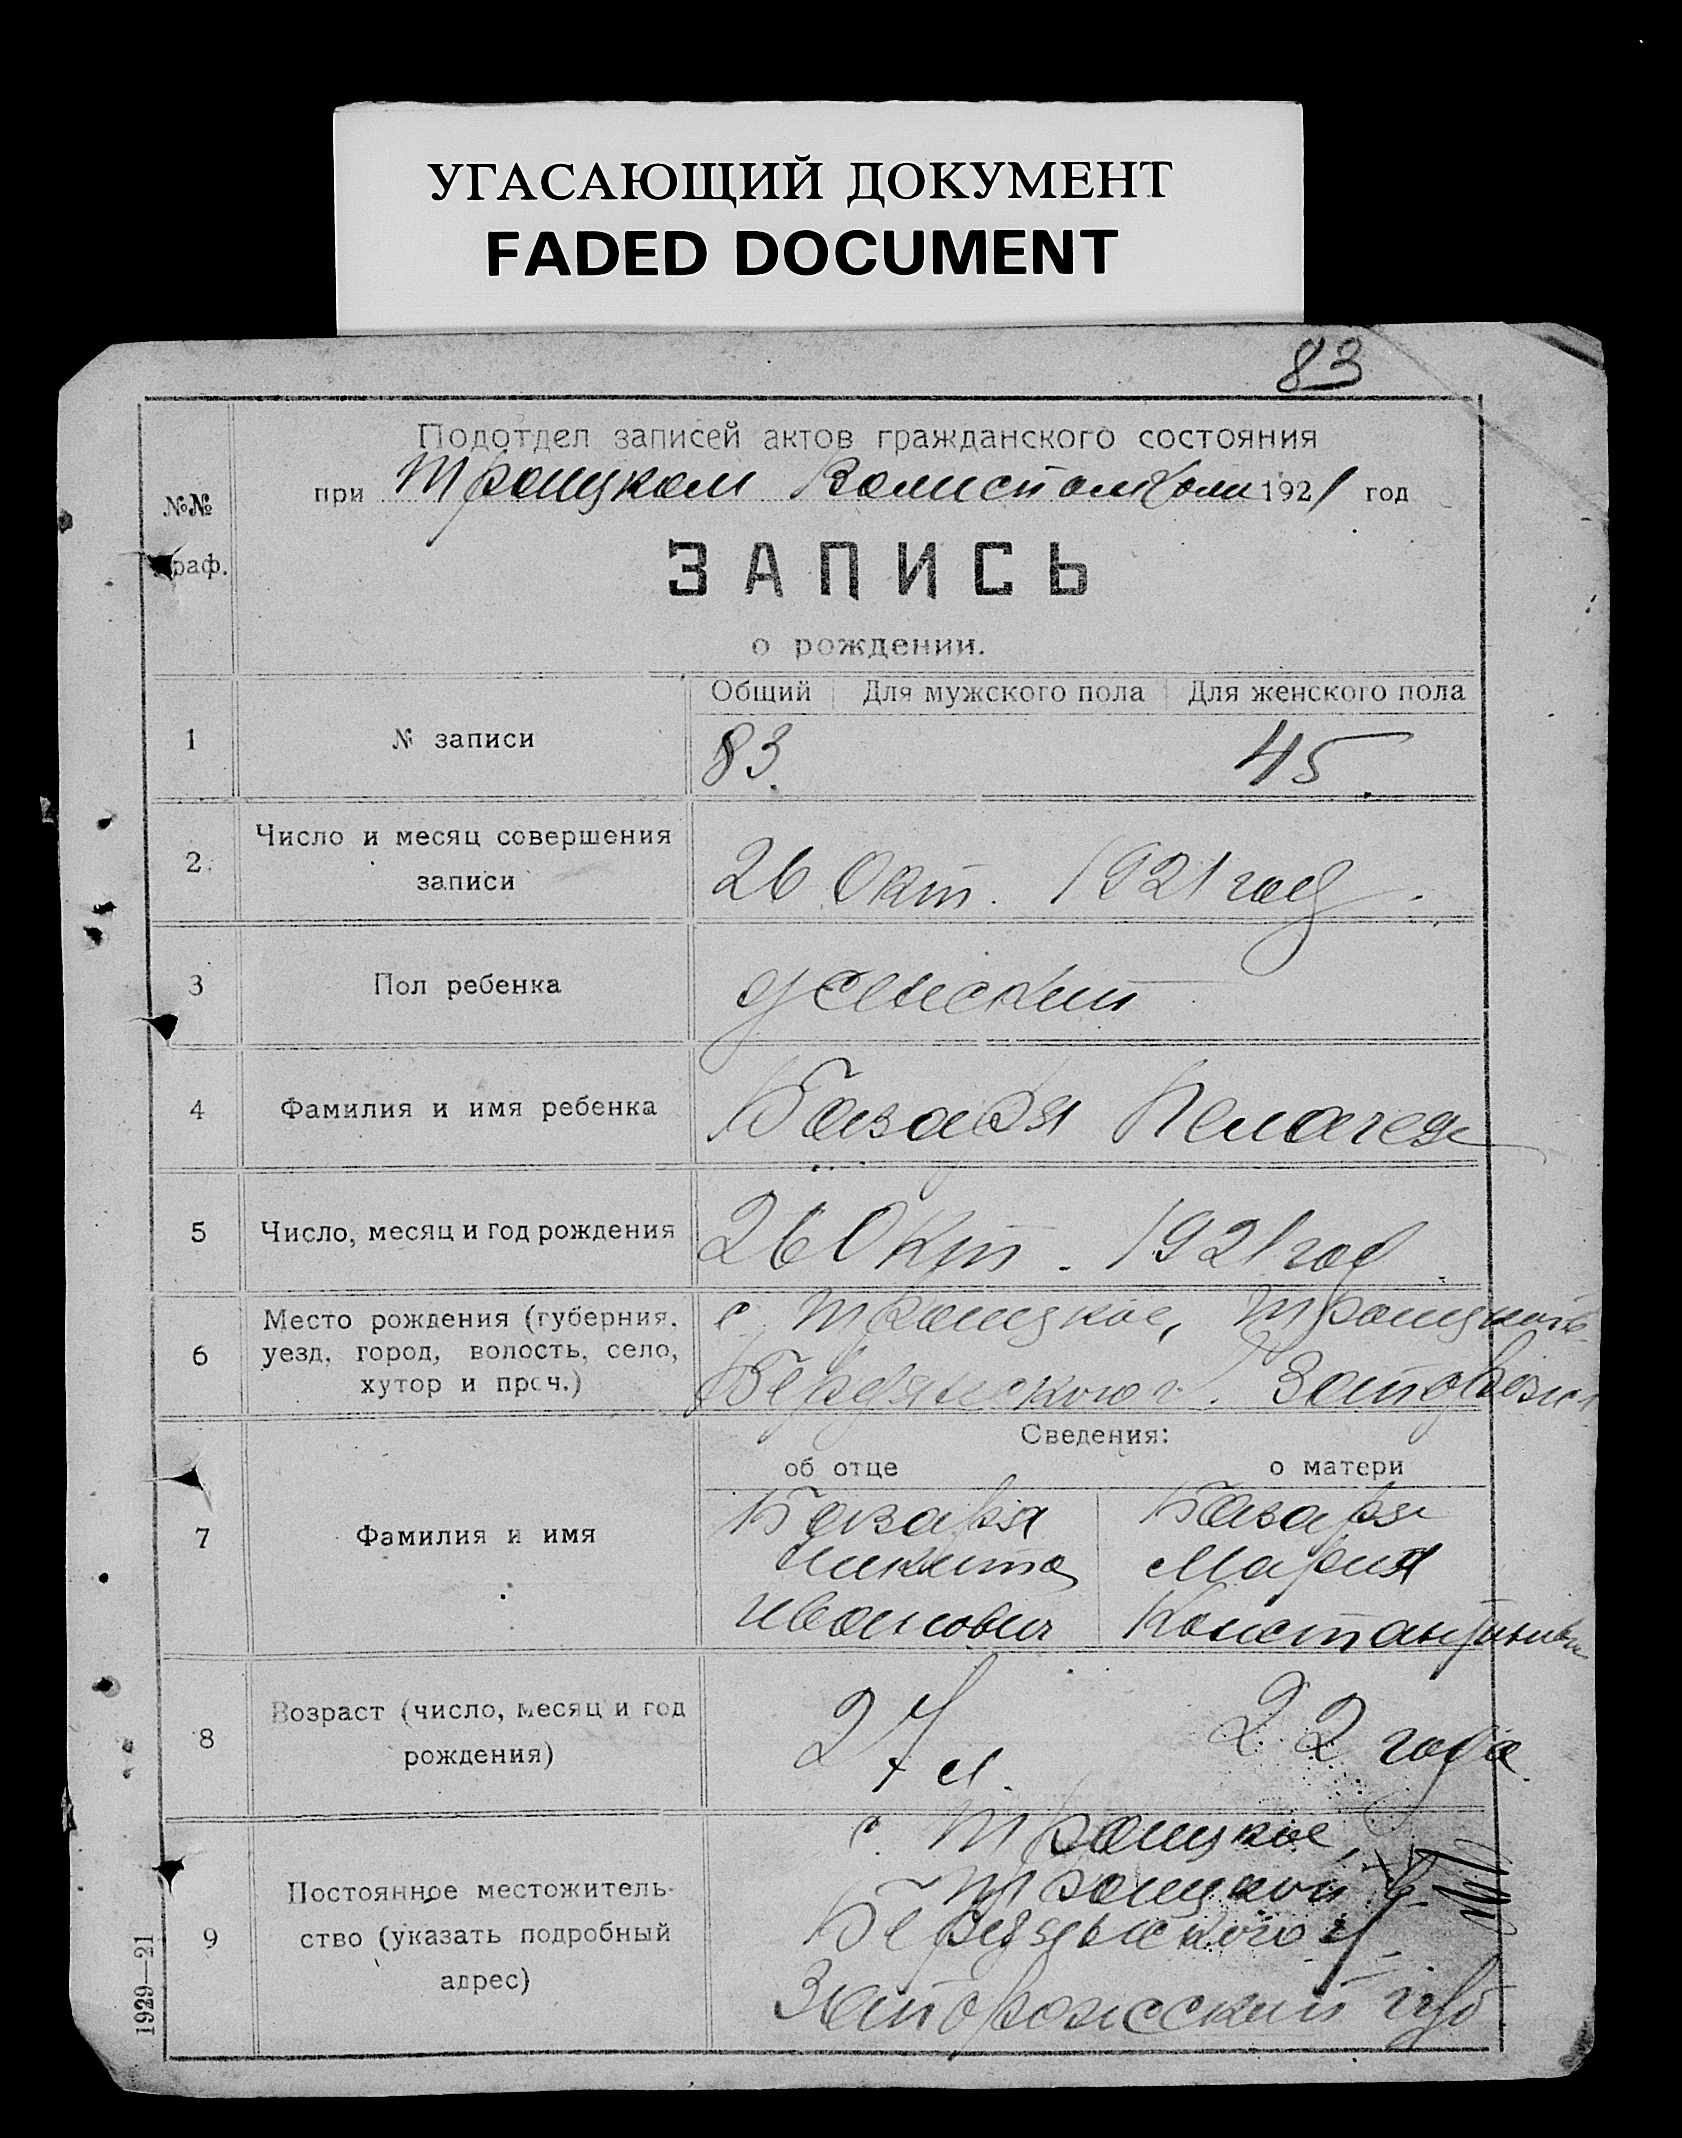 УГАСАЮЩИЙ ДОКУМЕНТ
FADED DOCUMENT
83
Подотдел записей актов гражданского состояния
при Троицком 1921 год
№№
граф.
ЗАПИСЬ
о рождении.
Общий Для мужского пола Для женского пола
1 № записи 83. 45.
2. Число и месяц совершения
записи
26 Окт. 1921 год.
3 Пол ребенка женский
4 Фамилия и имя ребенка Базаря Пелагея
5 Число, месяц и год рождения 26 Окт. 1921 год
6 Место рождения (губерния,
уезд, город, волость, село,
хутор и проч.)
с. Троицкое, Троицкой в
Бердянского у.
Сведения:
об отце о матери
7 Фамилия и имя
Базаря Базаря
Никита Мария
Иванович
8 Возраст (число, месяц и год
рождения)
27 л. 22 года.
9 Постоянное местожитель-
ство (указать подробный
адрес)
с. Троицкое,
Троицкой в
Бердянского у
Запорожский губ
1929—21